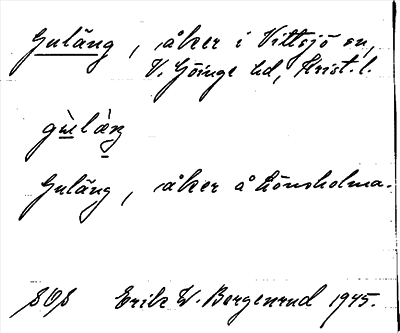 Guläng, åker i Vittsjö sn,
V. Göinge hd, Krist. l.
gùlàŋ
Guläng, åker å Lönsholma.
SOS Erik W. Bergenrud 1945.